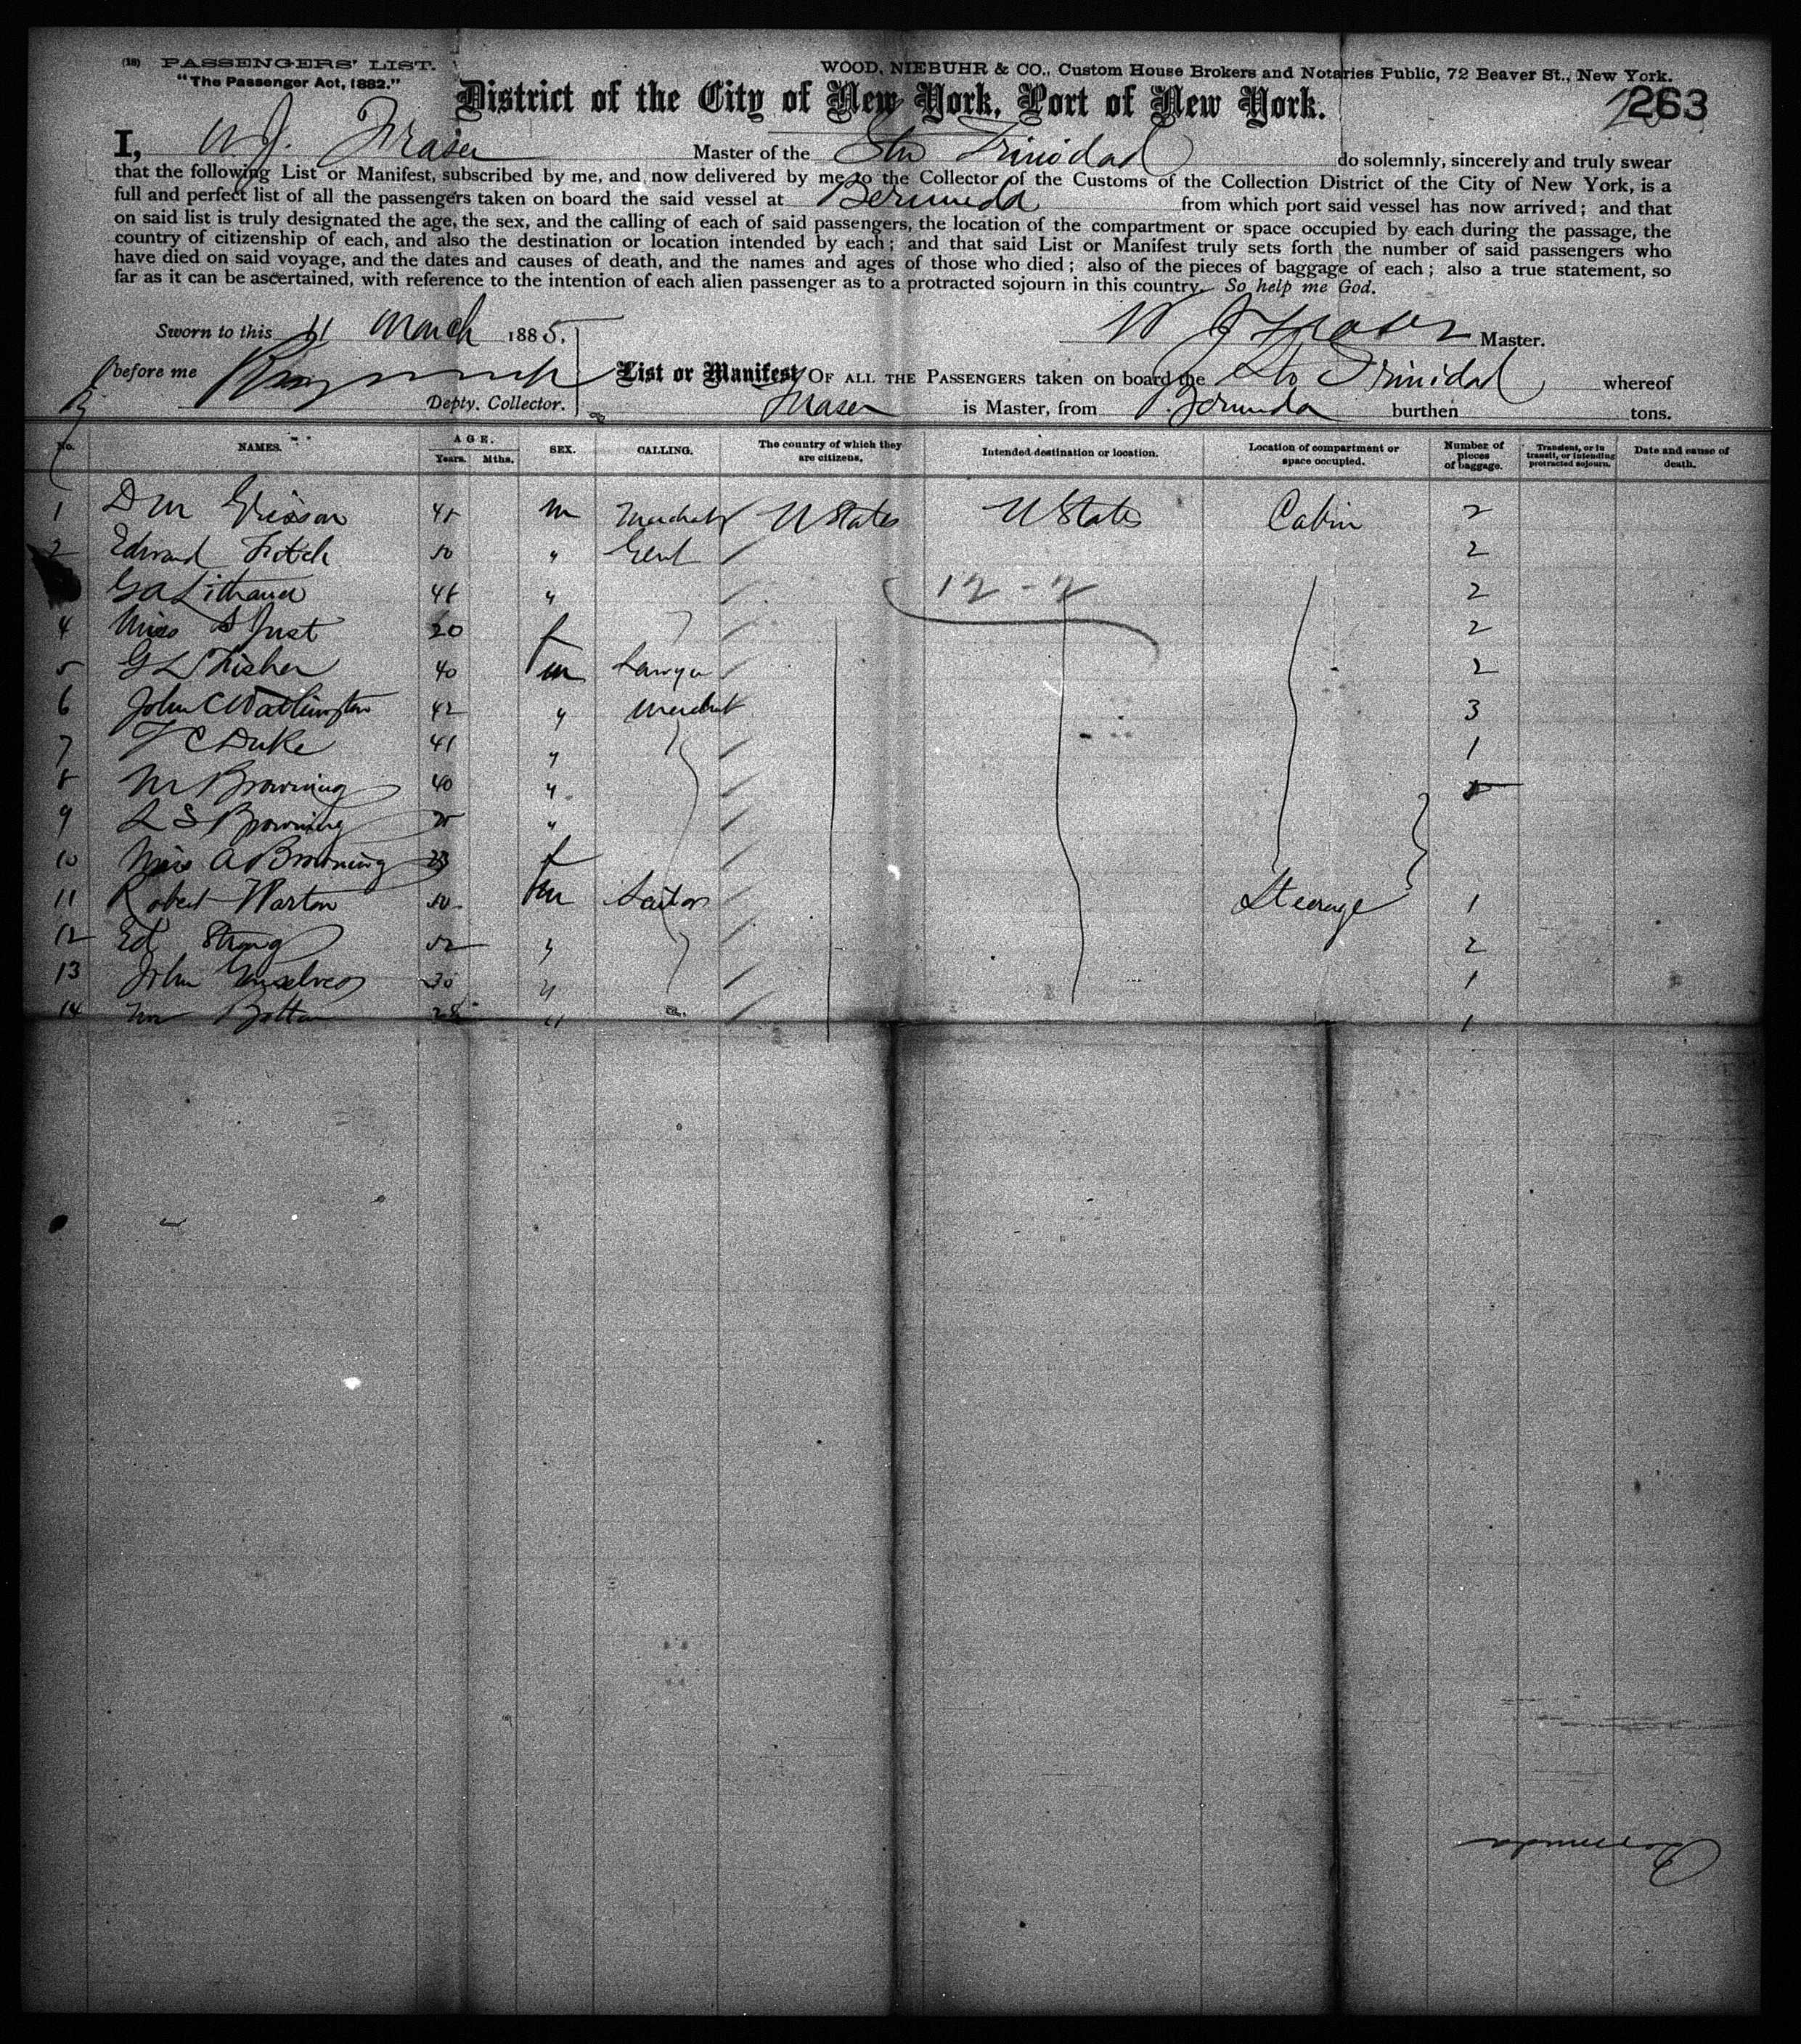 (18) PASSENGERS' LIST.
"The Passenger Act, 1882."
WOOD, NIEBUHR & CO., Custom House Brokers and Notaries Public, 72 Beaver St., New York.
District of the City of New York, Port of New York.
263
I, W. J. Fraser Master of the Str Trinidad do solemnly, sincerely and truly swear
that the following List or Manifest, subscribed by me, and now delivered by me to the Collector of the Customs of the Collection District of the City of New York, is a
full and perfect list of all the passengers taken on board the said vessel at Bermuda from which port said vessel has now arrived; and that
on said list is truly designated the age, the sex, and the calling of each of said passengers, the location of the compartment or space occupied by each during the passage, the
country of citizenship of each, and also the destination or location intended by each; and that said List or Manifest truly sets forth the number of said passengers who
have died on said voyage, and the dates and causes of death, and the names and ages of those who died; also of the pieces of baggage of each; also a true statement, so
far as it can be ascertained, with reference to the intention of each alien passenger as to a protracted sojourn in this country. So help me God.
Sworn to this 11 March 1885. W J Fraser Master.
before me
Depty. Collector.
List or Manifest OF ALL THE PASSENGERS taken on board the Str Trinidad whereof
Fraser is Master, from Bermuda burthen tons.
No. NAMES. AGE. Years. Mths. SEX. CALLING. The country of which they are citizens. Intended destination or location. Location of compartment or space occupied. Number of pieces of baggage. Transient, or in transit, or intending protracted sojourn. Date and cause of death.
1 D M 45 m Merchant U States U States Cabin 2
2 Edward Fitch 50 " Gent 2
G A Lithauer 48 " 12 - 2 2
4 Miss S Just 20 f 2
5 G L Fisher 40 m Lawyer 2
6 John C Watlington 42 " Merchant 3
7 T C Duke 41 " 1
8 M Browning 40 "
9 L S Browning "
10 Miss A Browning 23 f
11 Robert Warton 50 m Sailor Steerage 1
12 Ed Strong 52 " 2
13 John Gonsalves 30 " 1
14 Wm 28 " 1
Bermuda